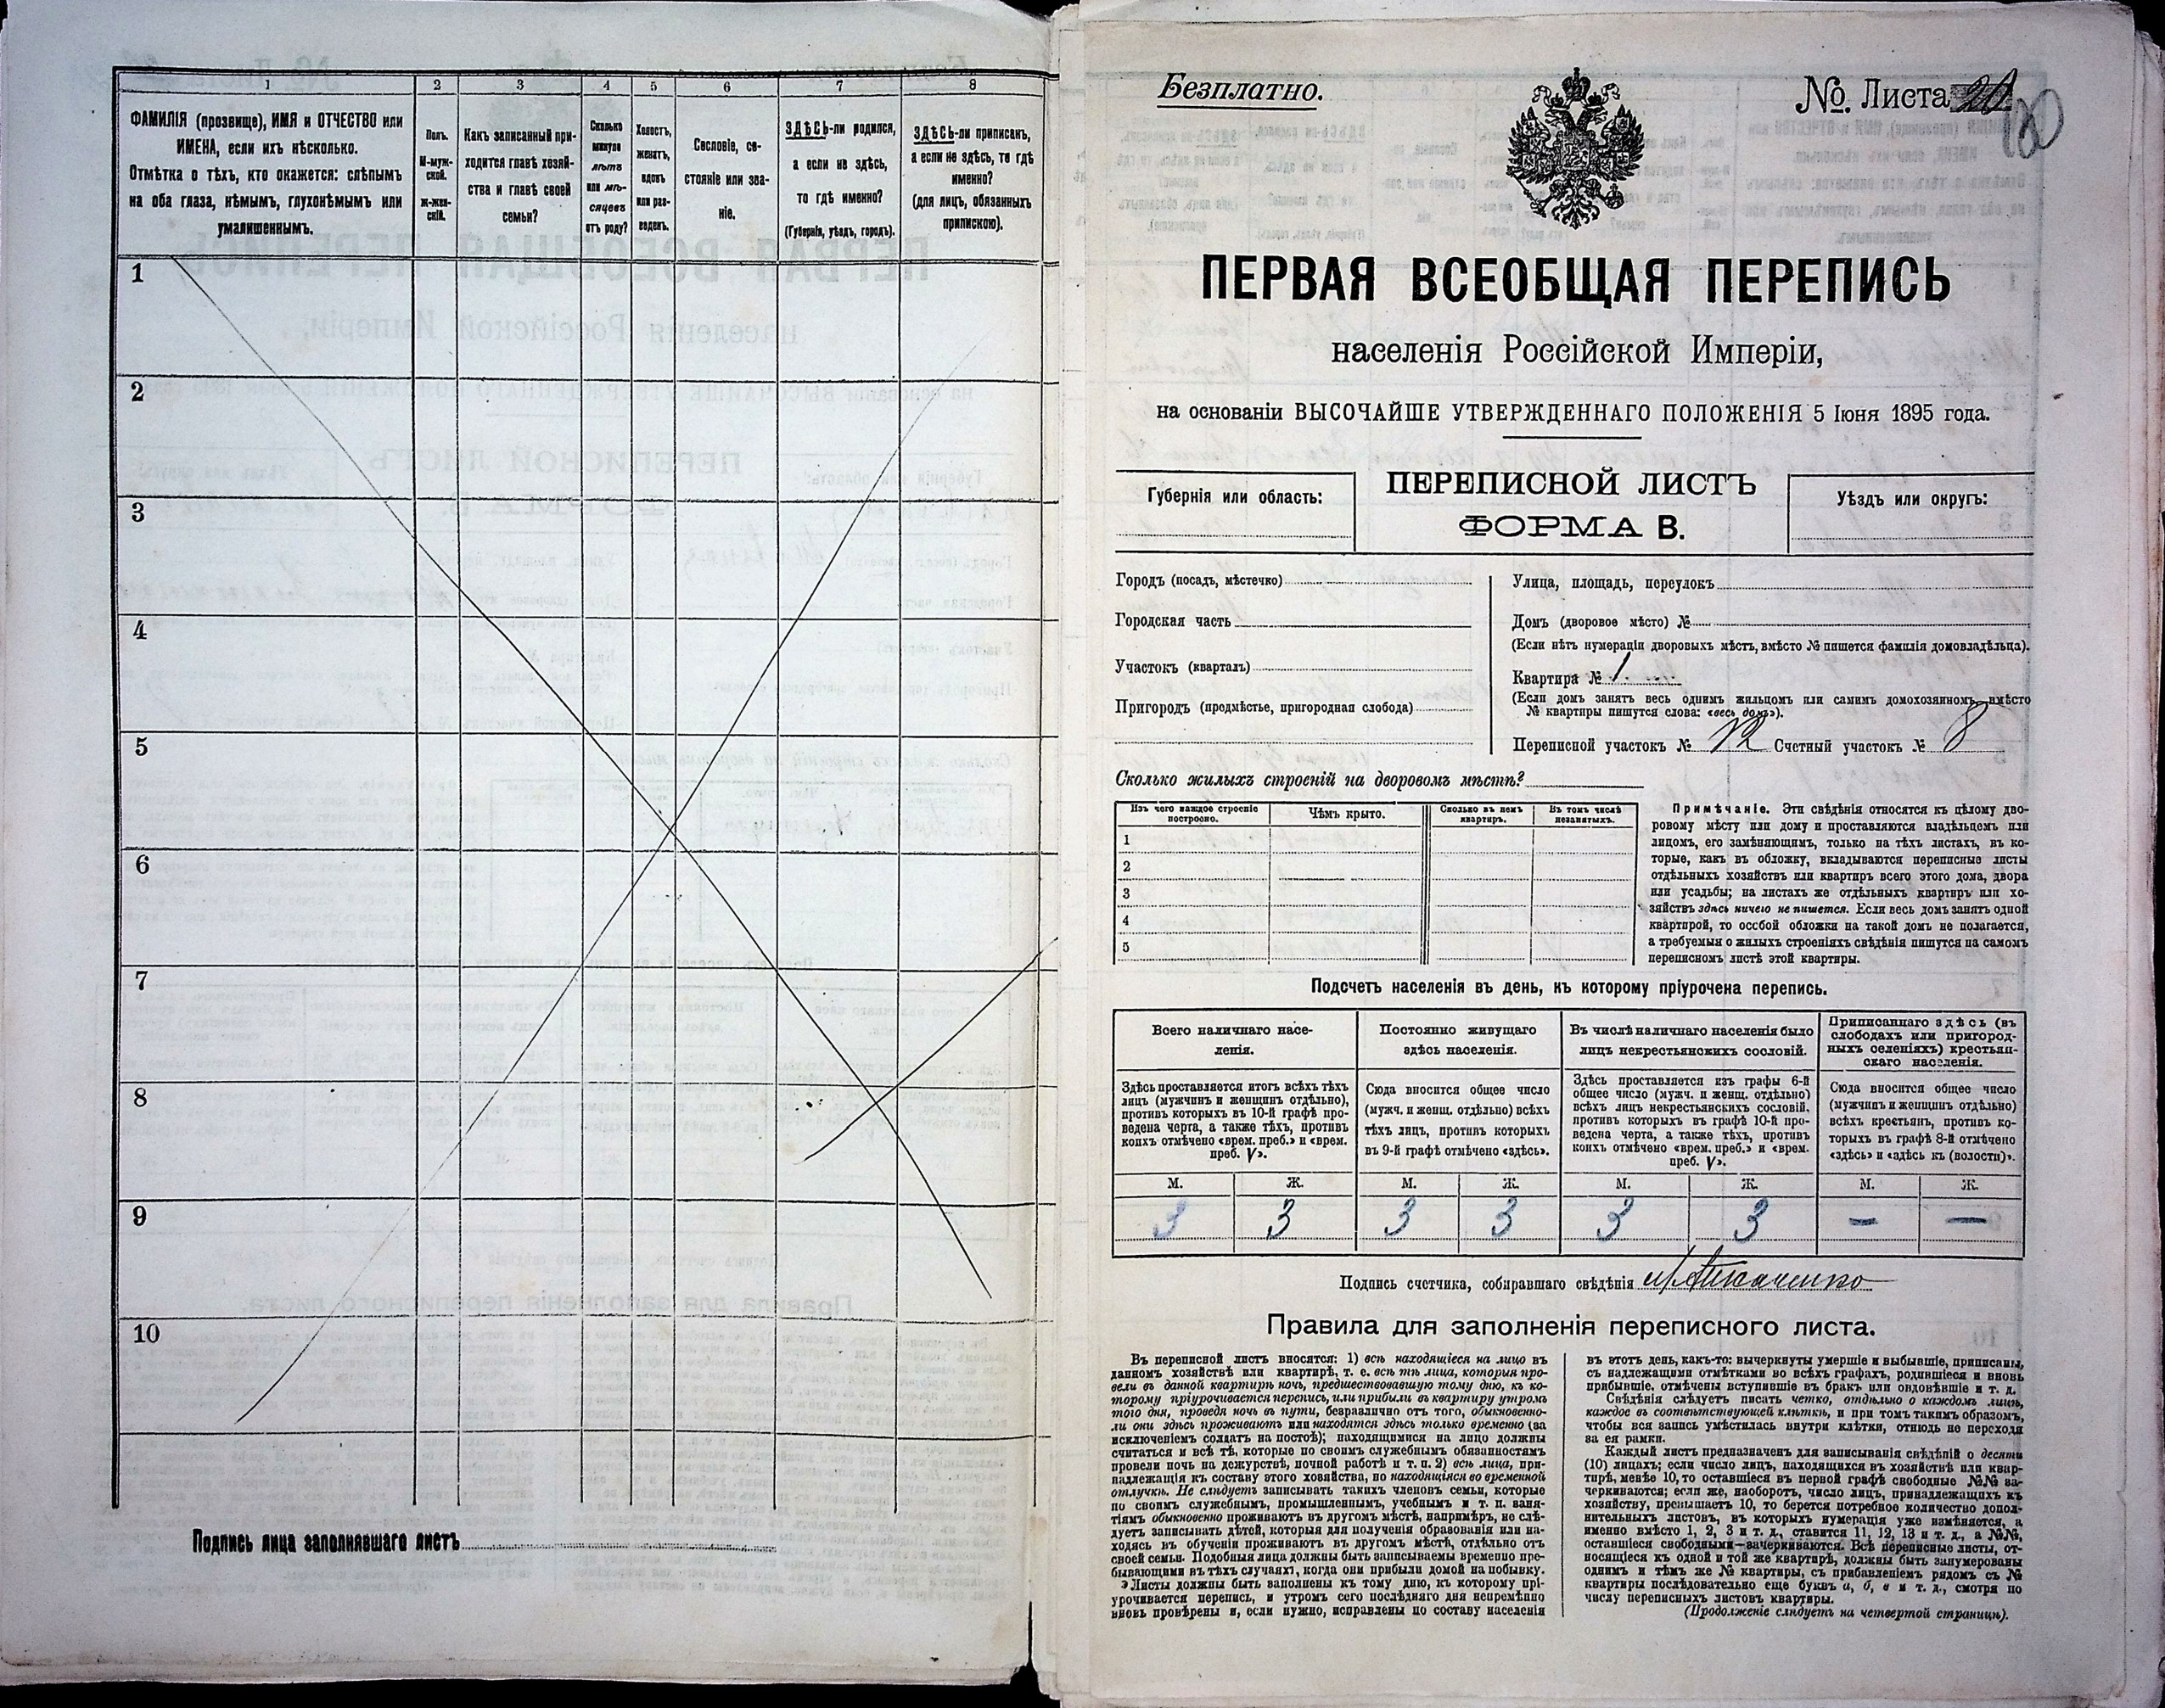 1 2 3 4 5 6 7 8
ФАМИЛІЯ (прозвище), ИМЯ и ОТЧЕСТВО или
ИМЕНА, если ихъ нѣсколько.
Отмѣтка о тѣхъ, кто окажется: слѣпымъ
на оба глаза, нѣмымъ, глухонѣмымъ или
умалишеннымъ.
Полъ.
М-муж-
ской.
Ж-жен-
скій.
Какъ записанный при-
ходится главѣ хозяй-
ства и главѣ своей
семьи?
Сколько
минуло
лѣтъ
или мѣ-
сяцевъ
отъ роду?
Холостъ,
женатъ,
вдовъ
или раз-
веденъ.
Сословіе, со-
стояніе или зва-
ніе.
ЗДѢСЬ-ли родился,
а если не здѣсь,
то гдѣ именно?
(Губернія, уѣздъ, городъ).
ЗДѢСЬ-ли приписанъ,
а если не здѣсь, то гдѣ
именно?
(для лицъ, обязанныхъ
припискою).
1
2
3
4
5
6
7
8
9
10
Подпись лица заполнявшаго листъ
Безплатно.
№. Листа 20
120
ПЕРВАЯ ВСЕОБЩАЯ ПЕРЕПИСЬ
населенія Россійской Имперіи,
на основаніи ВЫСОЧАЙШЕ УТВЕРЖДЕННАГО ПОЛОЖЕНІЯ 5 Іюня 1895 года.
Губернія или область:
ПЕРЕПИСНОЙ ЛИСТЪ
ФОРМА В.
Уѣздъ или округъ:
Городъ (посадъ, мѣстечко)
Городская часть
Участокъ (кварталъ)
Пригородъ (предмѣстье, пригородная слобода)
Улица, площадь, переулокъ
Домъ (дворовое мѣсто) №
(Если нѣтъ нумераціи дворовыхъ мѣстъ, вмѣсто № пишется фамилія домовладѣльца).
Квартира № 1
(Если домъ занятъ весь однимъ жильцомъ или самимъ домохозяиномъ, вмѣсто
№ квартиры пишутся слова: «весь домъ»).
Переписной участокъ № 12 Счетный участокъ № 8
Сколько жилыхъ строеній на дворовомъ мѣстѣ?
Изъ чего каждое строеніе
построено.
Чѣмъ крыто.
Сколько въ немъ
квартиръ.
Въ томъ числѣ
незанятыхъ.
1
2
3
4
5
Примѣчаніе. Эти свѣдѣнія относятся къ цѣлому дво-
ровому мѣсту или дому и проставляются владѣльцемъ или
лицомъ, его замѣняющимъ, только на тѣхъ листахъ, въ ко-
торые, какъ въ обложку, вкладываются переписные листы
отдѣльныхъ хозяйствъ или квартиръ всего этого дома, двора
или усадьбы; на листахъ же отдѣльныхъ квартиръ или хо-
зяйствъ здѣсь ничего не пишется. Если весь домъ занятъ одной
квартирой, то особой обложки на такой домъ не полагается,
а требуемыя о жилыхъ строеніяхъ свѣдѣнія пишутся на самомъ
переписномъ листѣ этой квартиры.
Подсчетъ населенія въ день, къ которому пріурочена перепись.
Всего наличнаго насе-
ленія.
Здѣсь проставляется итогъ всѣхъ тѣхъ
лицъ (мужчинъ и женщинъ отдѣльно),
противъ которыхъ въ 10-й графѣ про-
ведена черта, а также тѣхъ, противъ
коихъ отмѣчено «врем. преб.» и «врем.
преб. V».
Постоянно живущаго
здѣсь населенія.
Сюда вносится общее число
(мужч. и женщ. отдѣльно) всѣхъ
тѣхъ лицъ, противъ которыхъ
въ 9-й графѣ отмѣчено «здѣсь».
Въ числѣ наличнаго населенія было
лицъ некрестьянскихъ сословій.
Здѣсь проставляется изъ графы 6-й
общее число (мужч. и женщ. отдѣльно)
всѣхъ лицъ некрестьянскихъ сословій,
противъ которыхъ въ графѣ 10-й про-
ведена черта, а также тѣхъ, противъ
коихъ отмѣчено «врем. преб.» и «врем.
преб. V».
Приписаннаго здѣсь (въ
слободахъ или пригород-
ныхъ селеніяхъ) крестьян-
скаго населенія.
Сюда вносится общее число
(мужчинъ и женщинъ отдѣльно)
всѣхъ крестьянъ, противъ ко-
торыхъ въ графѣ 8-й отмѣчено
«здѣсь» и «здѣсь къ (волости)».
М. Ж. М. Ж. М. Ж. М. Ж.
3 3 3 3 3 3 — —
Подпись счетчика, собиравшаго свѣдѣнія Ткаченко
Правила для заполненія переписного листа.
Въ переписной листъ вносятся: 1) всѣ находящіеся на лицо въ
данномъ хозяйствѣ или квартирѣ, т. е. всѣ тѣ лица, которыя про-
вели въ данной квартирѣ ночь, предшествовавшую тому дню, къ ко-
торому пріурочивается перепись, или прибыли въ квартиру утромъ
того дня, проведя ночь въ пути, безразлично отъ того, обыкновенно-
ли они здѣсь проживаютъ или находятся здѣсь только временно (за
исключеніемъ солдатъ на постоѣ); находящимися на лицо должны
считаться и всѣ тѣ, которые по своимъ служебнымъ обязанностямъ
провели ночь на дежурствѣ, ночной работѣ и т. п. 2) всѣ лица, при-
надлежащія къ составу этого хозяйства, но находящіяся во временной
отлучкѣ. Не слѣдуетъ записывать такихъ членовъ семьи, которые
по своимъ служебнымъ, промышленнымъ, учебнымъ и т. п. заня-
тіямъ обыкновенно проживаютъ въ другомъ мѣстѣ, напримѣръ, не слѣ-
дуетъ записывать дѣтей, которыя для полученія образованія или на-
ходясь въ обученіи проживаютъ въ другомъ мѣстѣ, отдѣльно отъ
своей семьи. Подобныя лица должны быть записываемы временно пре-
бывающими въ тѣхъ случаяхъ, когда они прибыли домой на побывку.
Листы должны быть заполнены къ тому дню, къ которому прі-
урочивается перепись, и утромъ сего послѣдняго дня непремѣнно
вновь провѣрены и, если нужно, исправлены по составу населенія
въ этотъ день, какъ-то: вычеркнуты умершіе и выбывшіе, приписаны,
съ надлежащими отмѣтками во всѣхъ графахъ, родившіеся и вновь
прибывшіе, отмѣчены вступившіе въ бракъ или овдовѣвшіе и т. д.
Свѣдѣнія слѣдуетъ писать четко, отдѣльно о каждомъ лицѣ,
каждое въ соотвѣтствующей клѣткѣ, и при томъ такимъ образомъ,
чтобы вся запись умѣстилась внутри клѣтки, отнюдь не переходя
за ея рамки.
Каждый листъ предназначенъ для записыванія свѣдѣній о десяти
(10) лицахъ; если число лицъ, находящихся въ хозяйствѣ или квар-
тирѣ, менѣе 10, то оставшіеся въ первой графѣ свободные №№ за-
черкиваются; если же, наоборотъ, число лицъ, принадлежащихъ къ
хозяйству, превышаетъ 10, то берется потребное количество допол-
нительныхъ листовъ, въ которыхъ нумерація уже измѣняется, а
именно вмѣсто 1, 2, 3 и т. д., ставится 11, 12, 13 и т. д., а №№,
оставшіеся свободными—зачеркиваются. Всѣ переписные листы, от-
носящіеся къ одной и той же квартирѣ, должны быть занумерованы
однимъ и тѣмъ же № квартиры, съ прибавленіемъ рядомъ съ №
квартиры послѣдовательно еще буквъ а, б, в и т. д., смотря по
числу переписныхъ листовъ квартиры.
(Продолженіе слѣдуетъ на четвертой страницѣ).